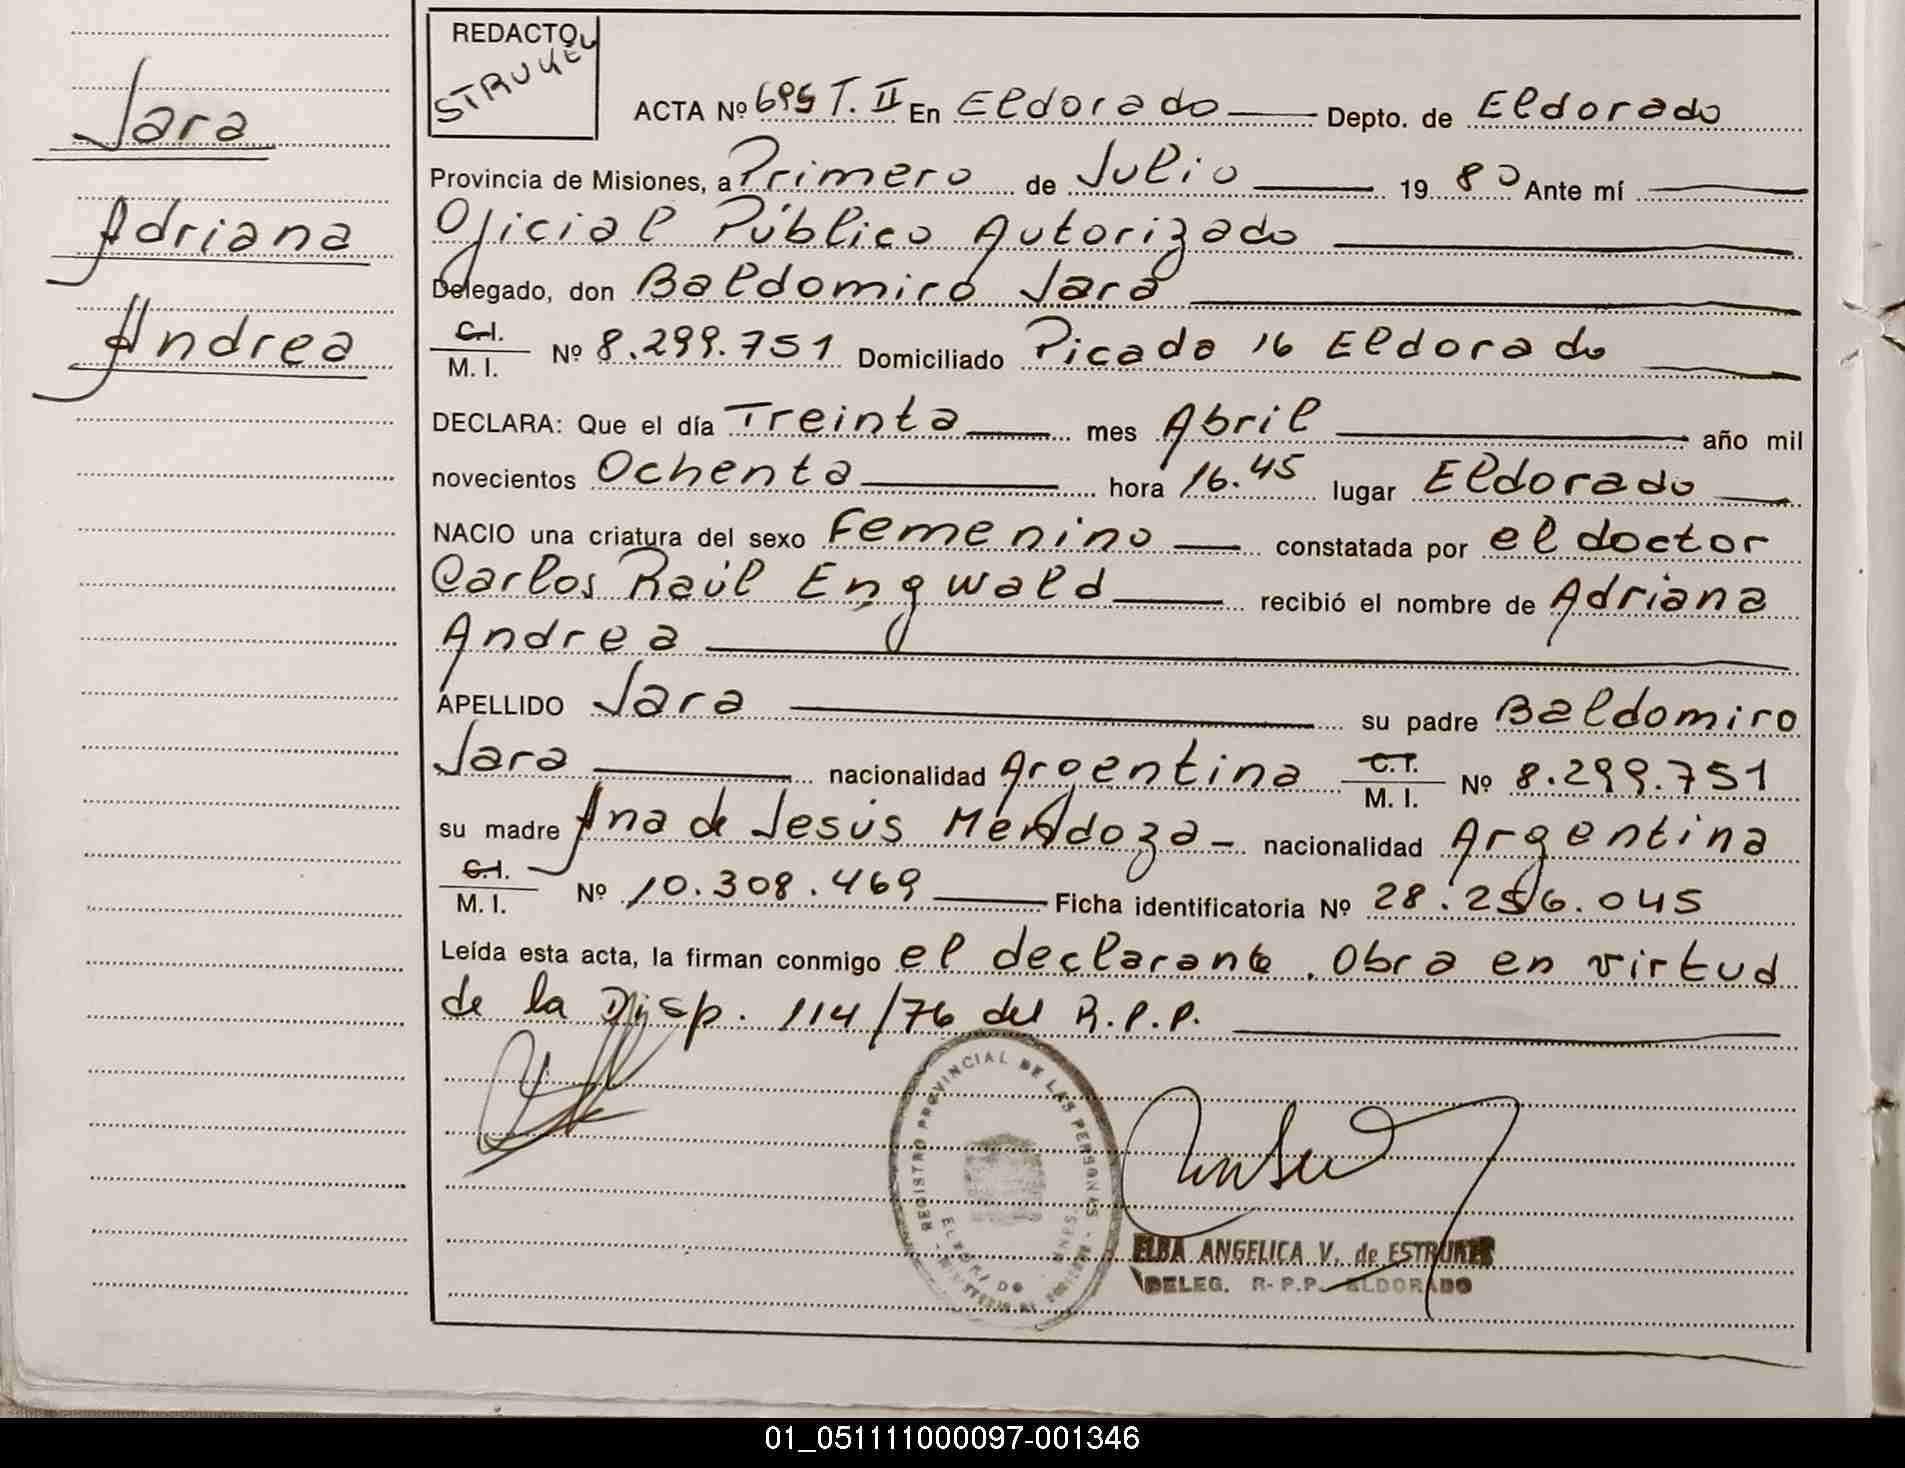 Jara
Adriana
Andrea
REDACTO
STRUKEL
ACTA Nº 695 T. II En Eldorado Depto. de Eldorado
Provincia de Misiones, a Primero de Julio 19 80 Ante mí
Oficial Público Autorizado
Delegado, don Baldomiro Jara
C.I. / M. I. Nº 8.299.751 Domiciliado Picada 16 Eldorado
DECLARA: Que el día Treinta mes Abril año mil
novecientos Ochenta hora 16.45 lugar Eldorado
NACIO una criatura del sexo Femenino constatada por el doctor
Carlos Raúl Engwald recibió el nombre de Adriana
Andrea
APELLIDO Jara su padre Baldomiro
Jara nacionalidad Argentina C.I. / M. I. Nº 8.299.751
su madre Ana de Jesús Mendoza nacionalidad Argentina
C.I. / M. I. Nº 10.308.469 Ficha identificatoria Nº 28.256.045
Leída esta acta, la firman conmigo el declarante. Obra en virtud
de la Disp. 114/76 del R.P.P.
REGISTRO PROVINCIAL DE LAS PERSONAS
ELDORADO
ELBA ANGELICA V. de
DELEG. R.P.P. ELDORADO
01_051111000097-001346